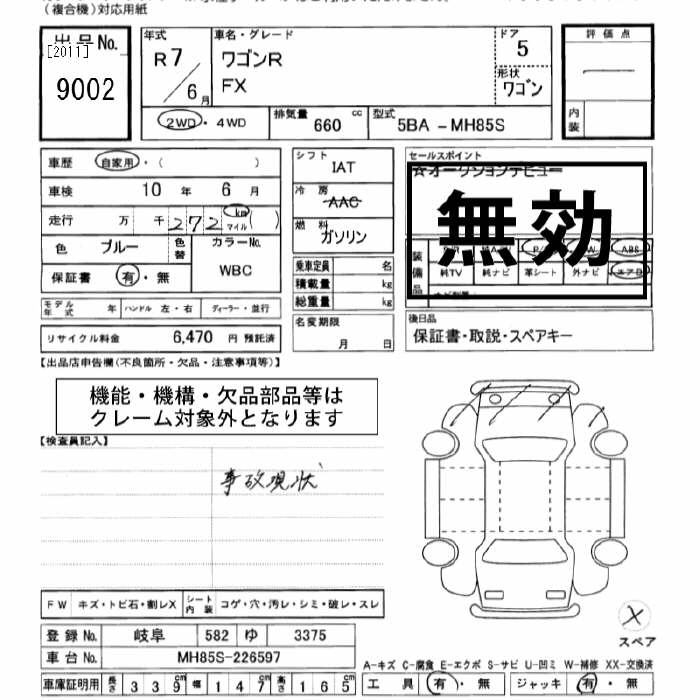 (複合機)対応用紙
出品No.
[2011]
9002
年式
R7/6月
車名・グレード
ワゴンR
FX
ドア
5
形状
ワゴン
評価点
内装
2WD・4WD
排気量 660 cc
型式 5BA -MH85S
車歴 自家用・( )
車検 10年 6月
走行 万 千 272 km マイル ( )
色 ブルー
色替
カラーNo.
WBC
保証書 有・無
モデル年式 年 ハンドル 左・右 ディーラー・並行
リサイクル料金 6,470 円 預託済
シフト IAT
冷房 AAC
燃料 ガソリン
乗車定員 名
積載量 kg
総重量 kg
名変期限
月 日
セールスポイント
☆オークションデビュー
無効
装備品
ABS
純TV 純ナビ 革シート 外ナビ エアB
後日品
保証書・取説・スペアキー
【出品店申告欄(不良箇所・欠品・注意事項等)】
機能・機構・欠品部品等は
クレーム対象外となります
【検査員記入】
事故現状
FW キズ・トビ石・割レX
シート内装 コゲ・穴・汚レ・シミ・破レ・スレ
登録No. 岐阜 582 ゆ 3375
車台No. MH85S-226597
車庫証明用 長さ 339cm 幅 147cm 高さ 165cm
X
スペア
A-キズ C-腐食 E-エクボ S-サビ U-凹ミ W-補修 XX-交換済
工具 有・無 ジャッキ 有・無